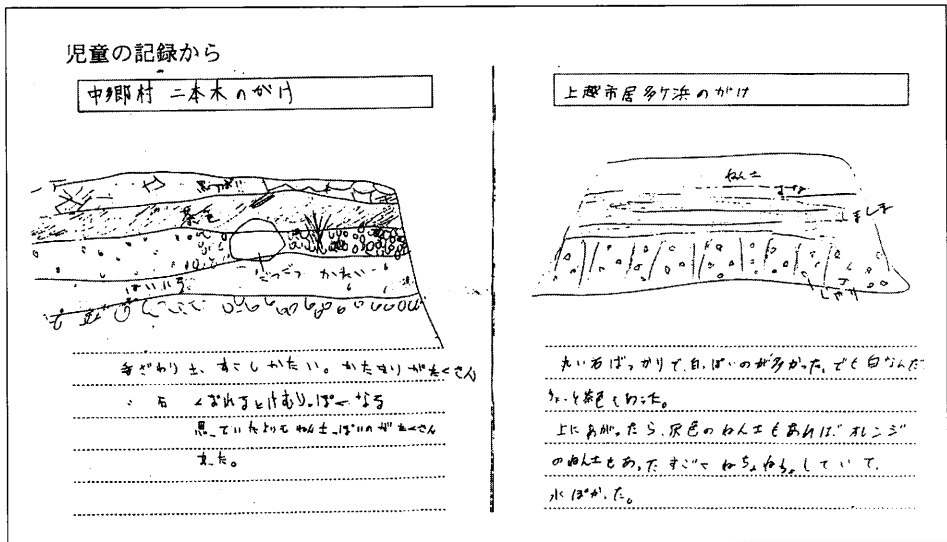 児童の記録から
中郷村 二本木のがけ
黒っぽい
茶色
ごつごつ かたい
はいいろ
手ざわり土、すこしかたい。かたまりがたくさん
石 くずれるとけむりっぽくなる
思っていたよりもねん土っぽいのがたくさん
あった。
上越市居多ヶ浜のがけ
ねん土
しましま
じゃり
丸い石ばっかりで、白っぽいのが多かった。でも白なんだ
ちょっと茶色もあった。
上にあがったら、灰色のねん土もあればオレンジ
のねん土もあった すごく ねちょねちょしていて、
水っぽかった。